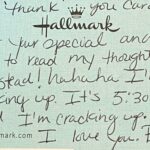 Thank you Car
Hallmark
Your Special and
to read my thought
stead! hahaha I
king up. It's 5:30
d I'm cracking up.
mark.com I love you.